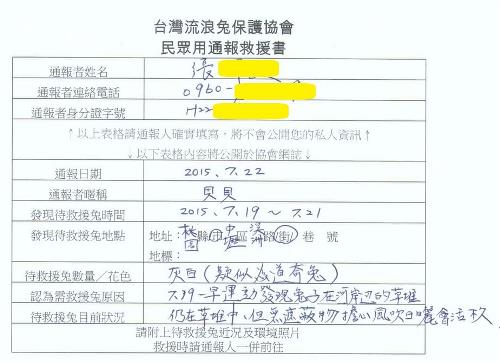 台灣流浪兔保護協會
民眾用通報救援書
通報者姓名 張
通報者連絡電話 0960-
通報者身分證字號 H22
↑以上表格請通報人確實填寫，將不會公開您的私人資訊↑
↓以下表格內容將公開於協會網誌↓
通報日期 2015、7、22
通報者暱稱 貝貝
發現待救援兔時間 2015、7、19～7、21
發現待救援兔地點 地址：桃園縣市中壢區 路街 巷 號
地標：
待救援兔數量／花色 灰白（疑似為道奇兔）
認為需救援兔原因 7.19一早運動發現兔子在河岸邊的草堆
待救援兔目前狀況 仍在草堆中，但無遮蔽物擔心風吹日曬會活
請附上待救援兔近況及環境照片
救援時請通報人一併前往